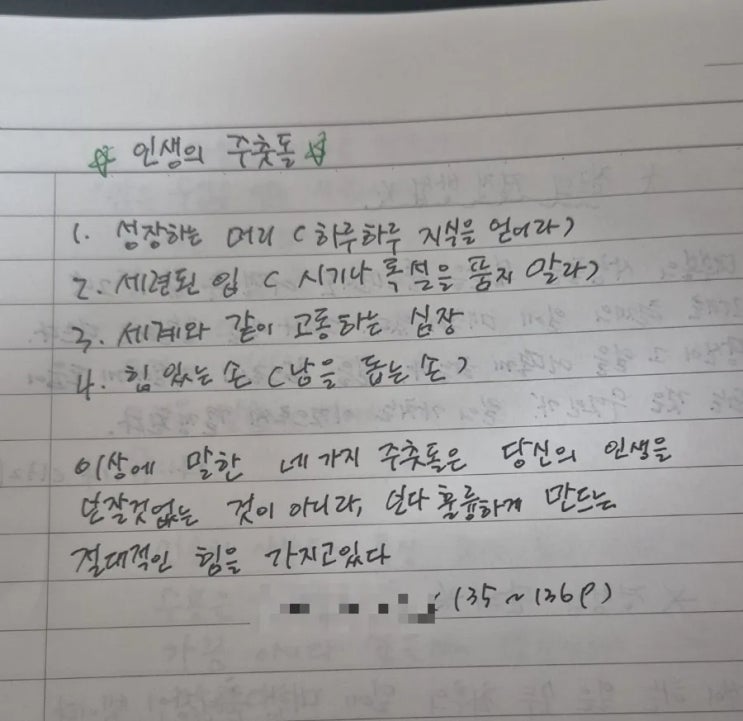 ☆ 인생의 주춧돌 ☆
1. 성장하는 머리 (하루하루 지식을 얻어라)
2. 세련된 입 (시기나 독설을 품지 말라)
3. 세계와 같이 고동하는 심장
4. 힘 있는 손 (남을 돕는 손)
이상에 말한 네 가지 주춧돌은 당신의 인생을
보잘것없는 것이 아니라, 보다 훌륭하게 만드는
절대적인 힘을 가지고있다
: (135~136p)